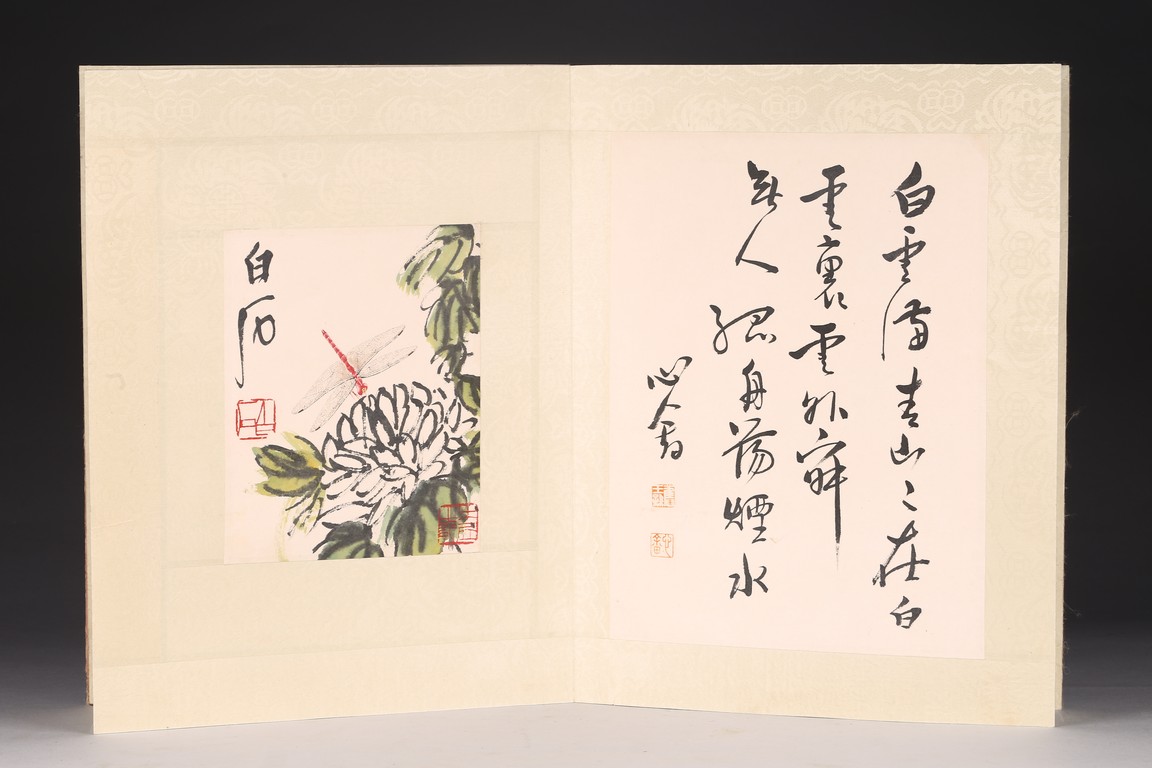 白雲滿青山々在白
雲裏雲外寂
無人孤舟蕩煙水
心畬
白石